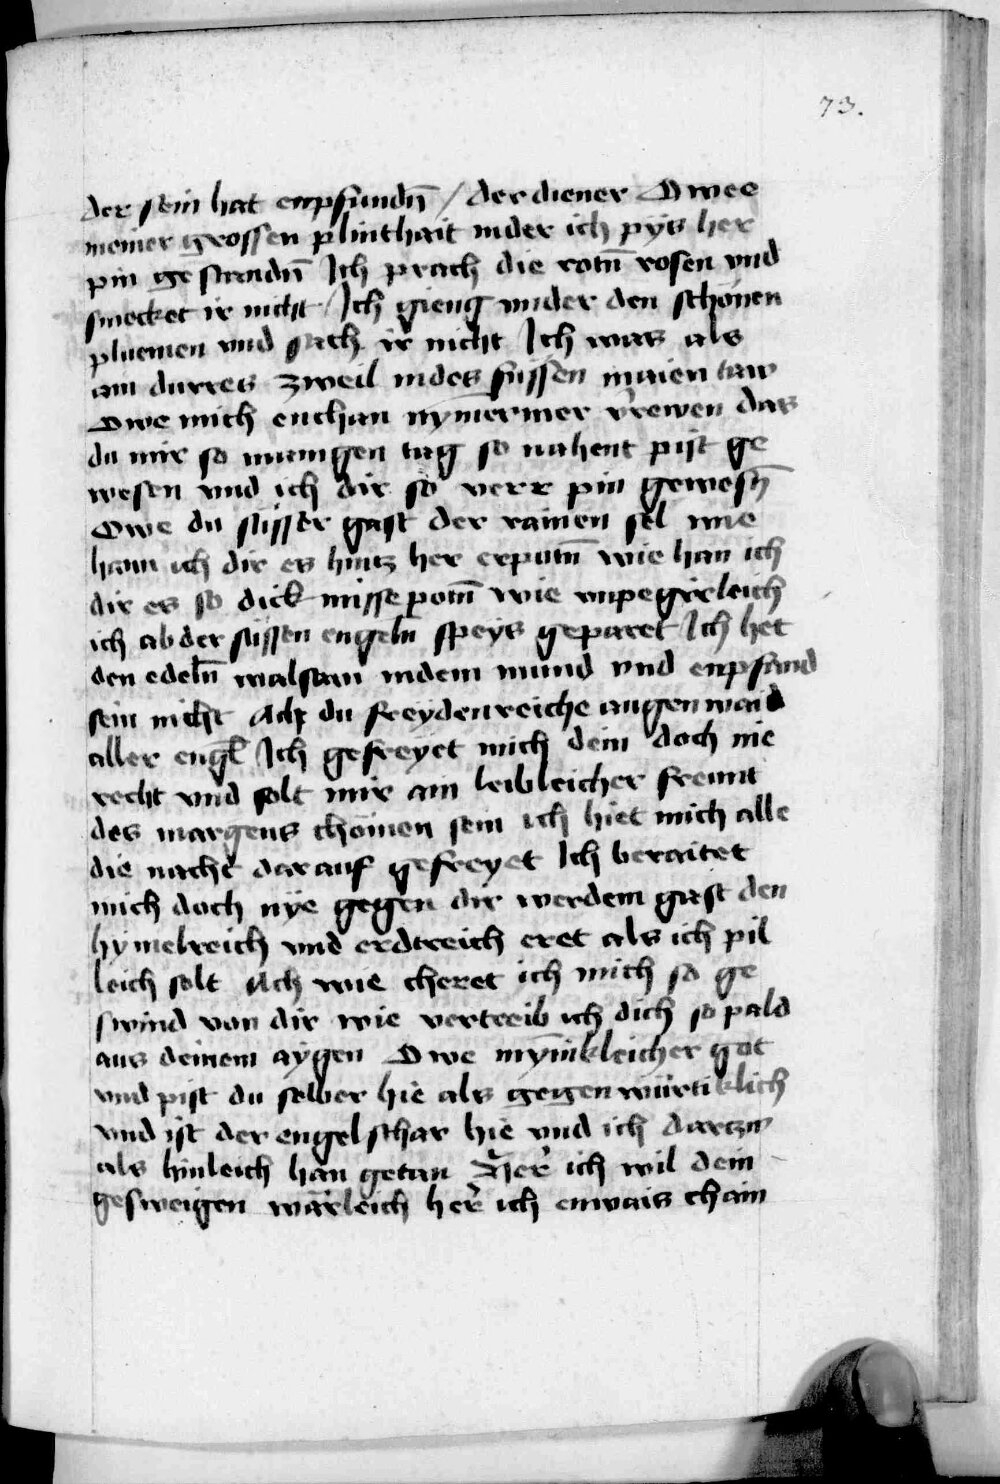 73.
der stein hat enpfundn̄ / der diener O wee
meiner grossen plinthait in der ich pÿs her
pin gestandn̄ Ich prach die rotn̄ rosen vnd
smecket ir nicht / Ich gieng vnder den schönen
pluemen vnd sach ir nicht Ich was als
ain durres zweil in des süssen maien taw
Owe mich enchan nÿmermer v̉rewen das
du mir so manigen tag so nahent pist ge
wesen vnd ich dir so verr pin gewesn̄
Owe du süsser gast der rainen sel wie
han ich dir es hintz her erpotn̄ wie han ich
dir es so dick missepotn̄ wie vnpegirleich
ich ab der süssen engeln̄ speÿs geparet Ich het
den edeln̄ walsam in dem mund vnd enpfand
sein nicht Ach du freÿdenreiche augenwaid
aller engl̄ Ich gefreÿet mich dein doch nie
recht vnd solt mir ain leibleicher freunt
des margens chömen sein ich hiet mich alle
die nacht darauf gefreyet Ich beraitet
mich doch nÿe gegen dir werdem gast den
hymelreich vnd erdtreich eret als ich pil
leich solt Ach wie cheret ich mich so ge
swind von dir wie vertreib ich dich so pald
aus deinem aÿgen Owe mÿnikleicher got
vnd pist du selber hie als gegenwürtiklich
vnd ist der engel schar hie vnd ich dartzw
als hinleich han getan Her̉ ich wil dein
gesweigen wärleich her̉ ich enwais chain